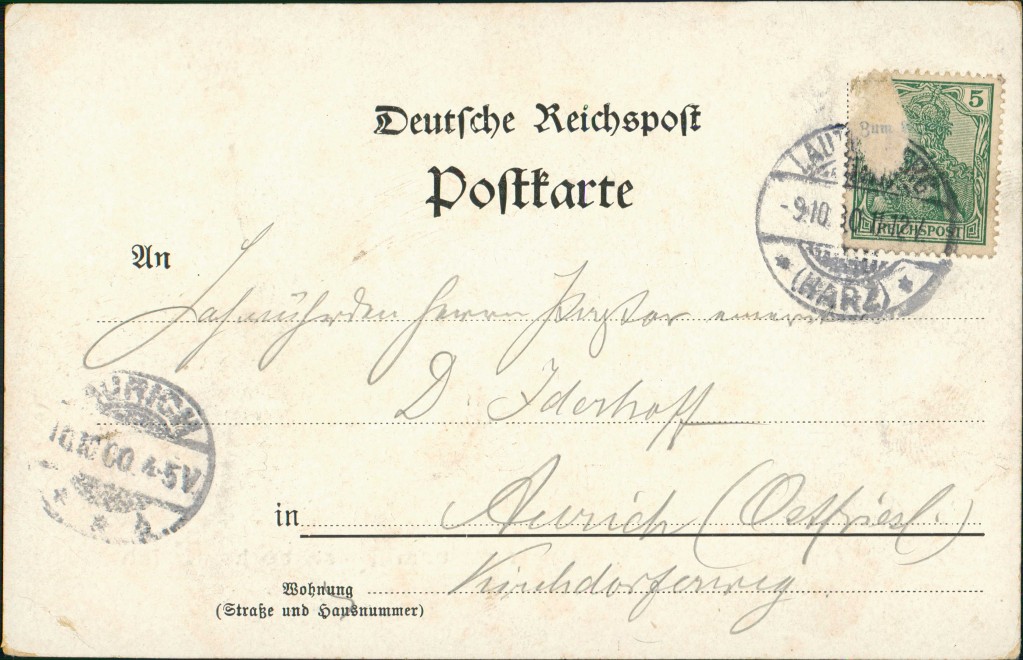 Deutsche Reichspost
Postkarte
5
REICHSPOST
Zum
LAUT
-9.10. 11-12
* (HARZ) *
An
Herrn Pastor emerit
D Iderhoff
AURICH
10.10 00 4-5V
* *
in Aurich (Ostfriesl.)
Kirchdorferweg
Wohnung
(Straße und Hausnummer)